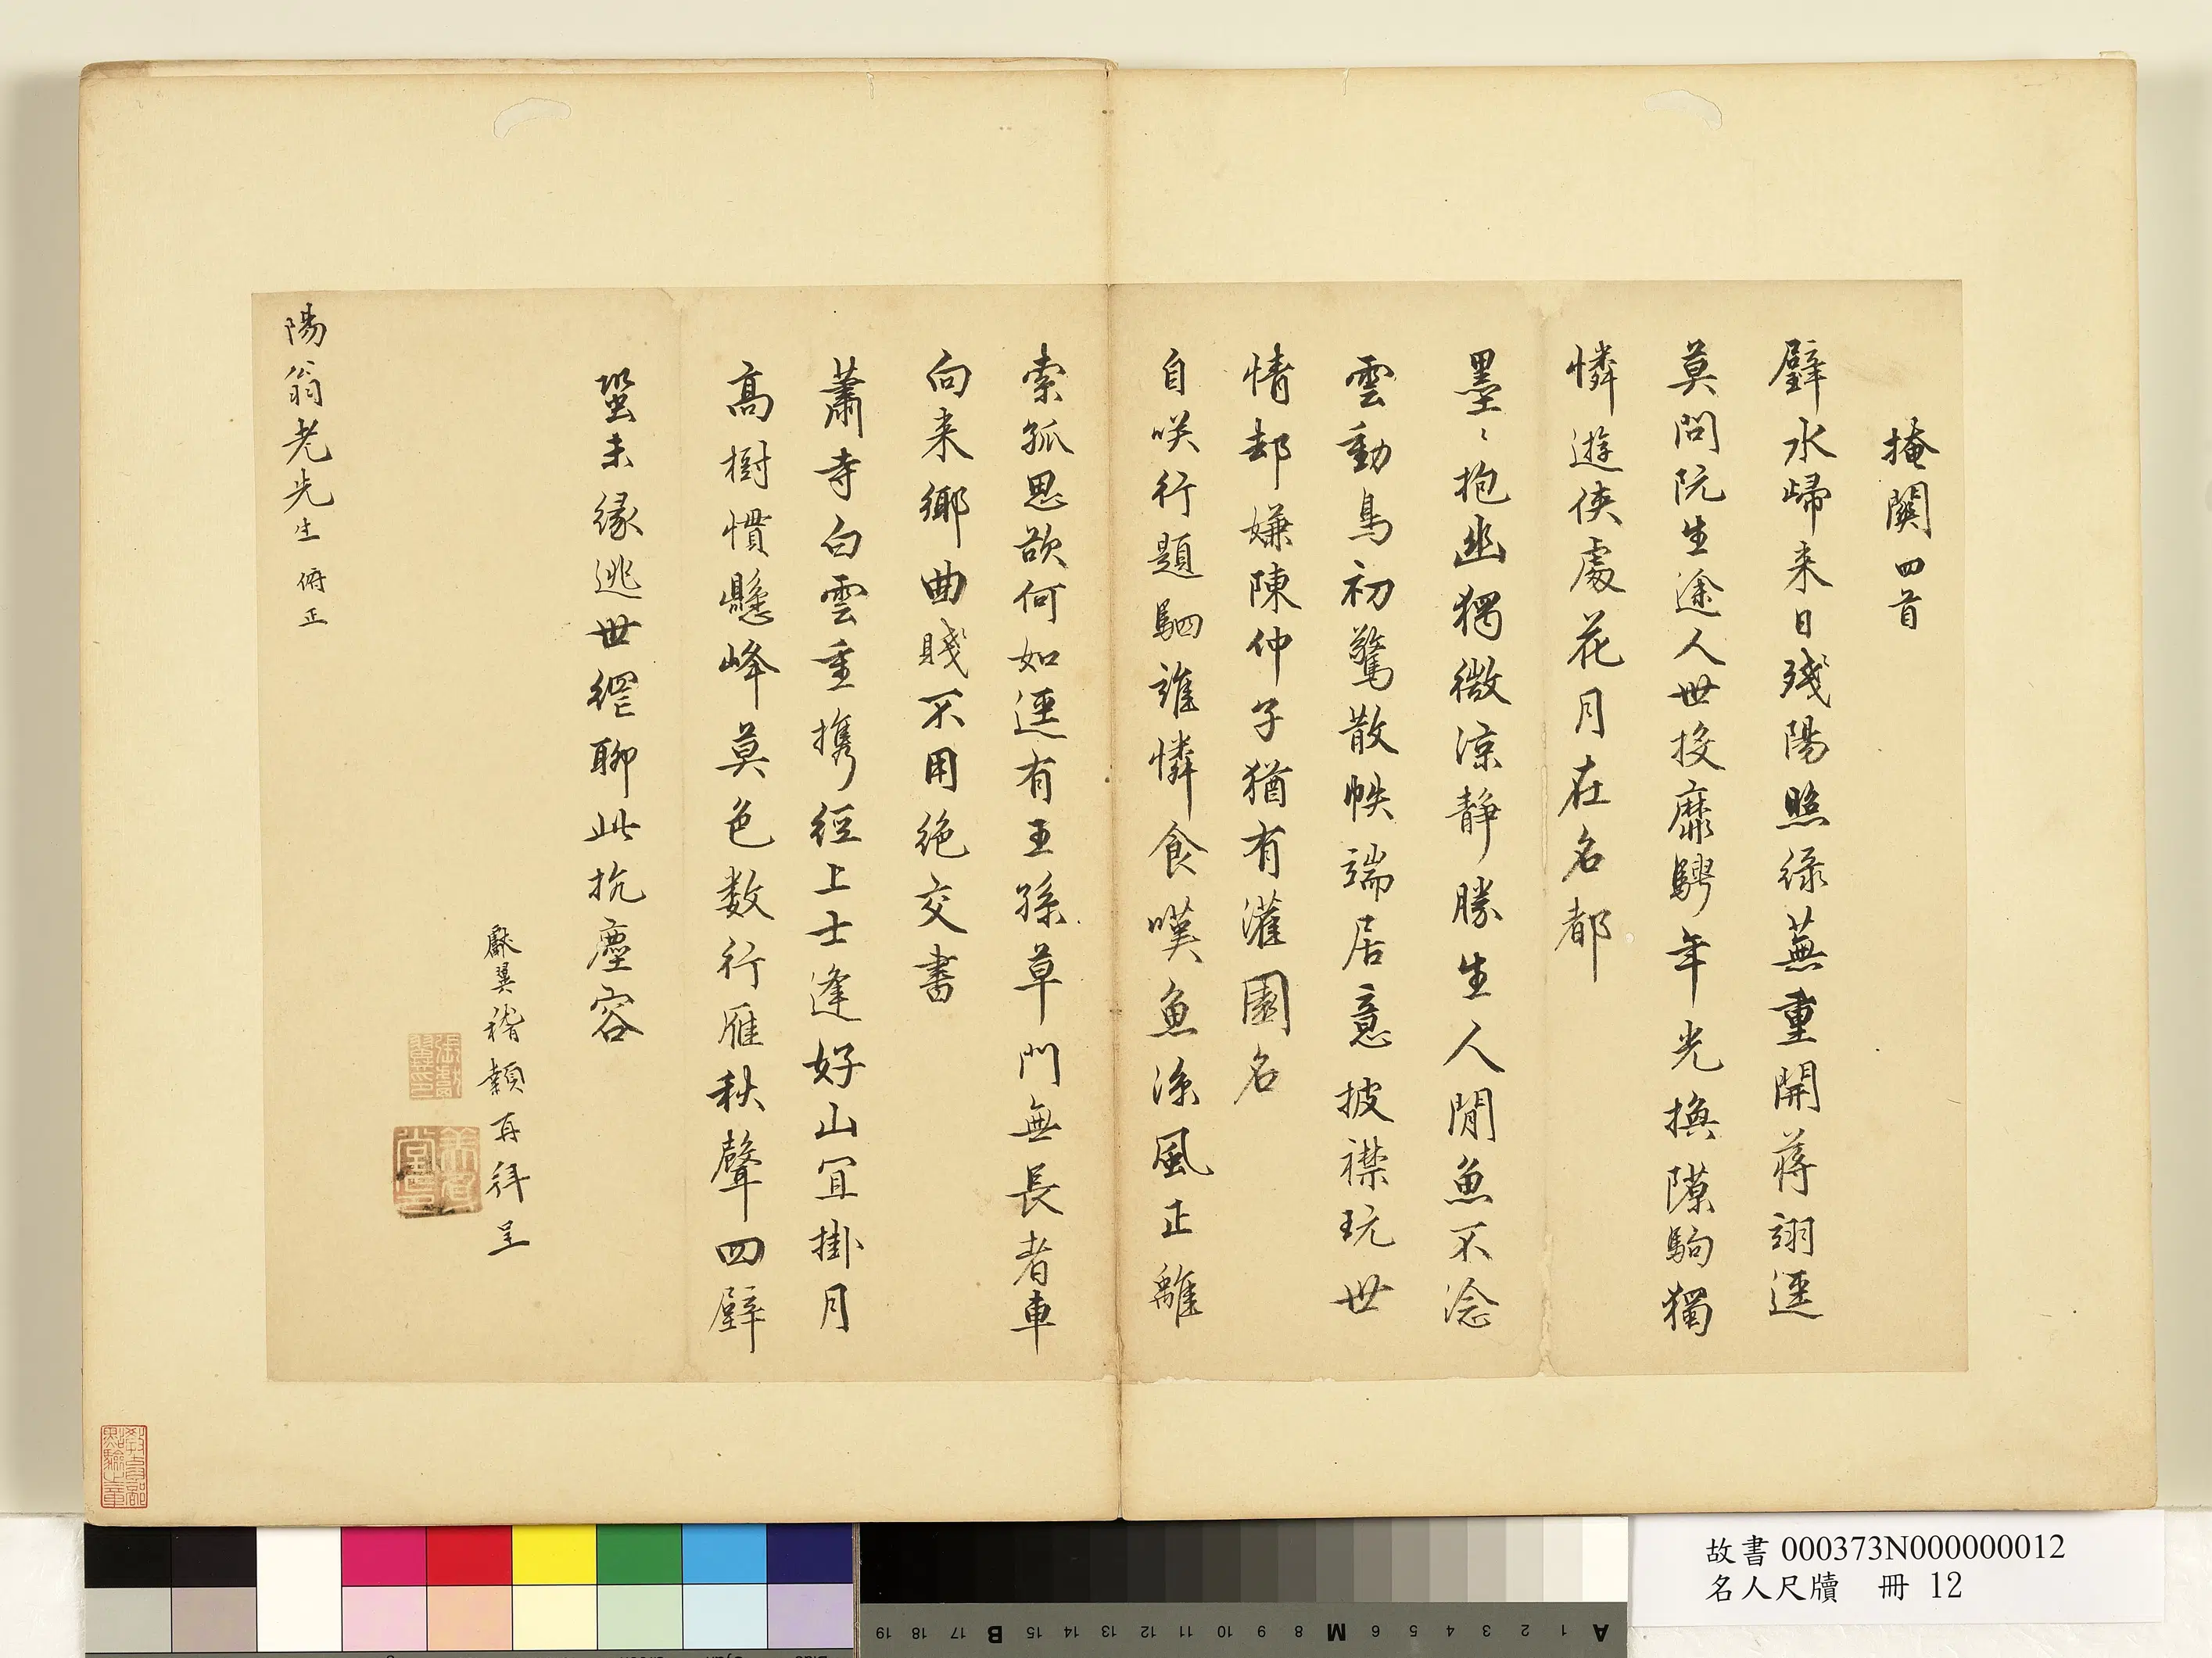 掩關四首
璧水歸来日殘陽照綠蕪重開蔣詡逕
莫問阮生途人世投縻騁年光換隙駒獨
憐遊俠處花月在名都
墨〻抱幽獨微涼靜勝生人閒魚不淰
雲動鳥初驚散帙端居意披襟玩世
情却嫌陳仲子猶有灌園名
自咲行題駟誰憐食嘆魚涼風正離
索孤思欲何如逕有王孫草門無長者車
向来鄉曲賤不用絶交書
蕭寺白雲重攜經上士逢好山宜掛月
高樹慣懸峰莫色数行雁秋聲四壁
蛩未緣逃世網聊此抗塵容
獻翼稽顙再拜呈
張獻翼印
陽翁老先生俯正
教育部點驗之章
故書 000373N000000012
名人尺牘 冊 12
A 1 2 3 4 5 6 M 8 9 10 11 12 13 14 15 B 17 18 19